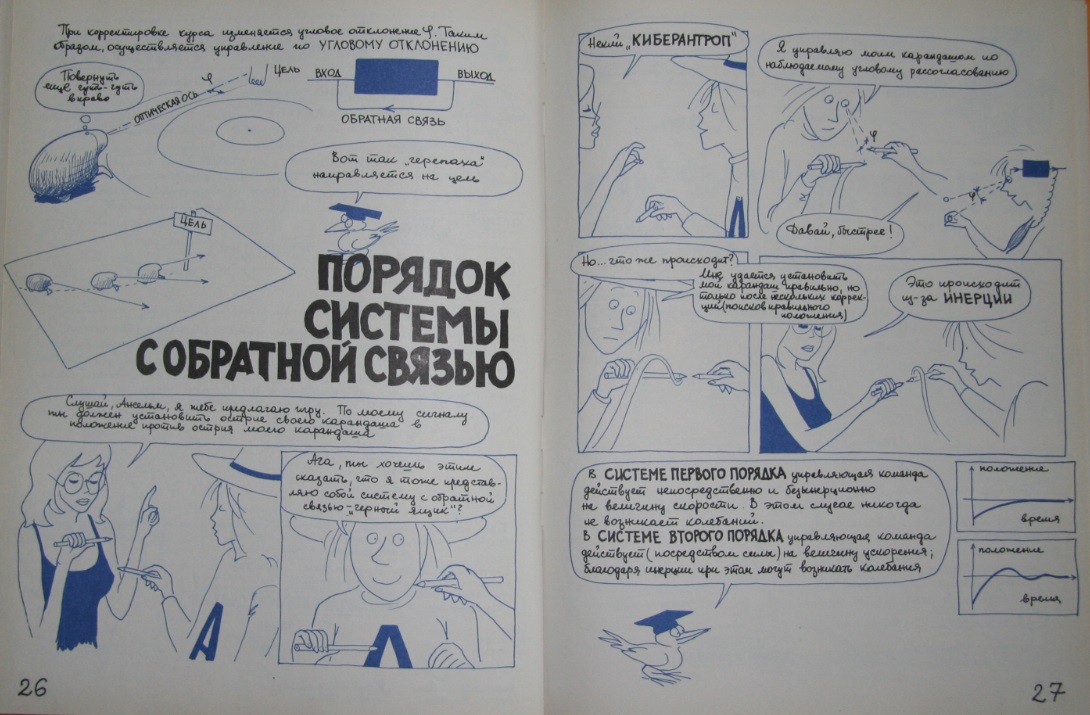 При корректировке курса изменяется угловое отклонение φ. Таким
образом, осуществляется управление по УГЛОВОМУ ОТКЛОНЕНИЮ
Повернуть
еще чуть-чуть
вправо
φ
ОПТИЧЕСКАЯ ОСЬ
ЦЕЛЬ
ВХОД
ВЫХОД
ОБРАТНАЯ СВЯЗЬ
Вот так „черепаха"
направляется на цель
ЦЕЛЬ
ПОРЯДОК
СИСТЕМЫ
С ОБРАТНОЙ СВЯЗЬЮ
Слушай, Ансельм, я тебе предлагаю игру. По моему сигналу
ты должен установить острие своего карандаша в
положение против острия моего карандаша
Ага, ты хочешь этим
сказать, что я тоже представ-
ляю собой систему с обратной
связью-„черный ящик"?
A
A
26
Некий „КИБЕРАНТРОП"
A
Я управляю моим карандашом по
наблюдаемому угловому рассогласованию
φ
φ
Давай, быстрее!
Но... что же происходит?
Мне удается установить
мой карандаш правильно, но
только после нескольких коррек-
ций (поисков правильного
положения)
Это происходит
из-за ИНЕРЦИИ
В СИСТЕМЕ ПЕРВОГО ПОРЯДКА управляющая команда
действует непосредственно и безынерционно
на величину скорости. В этом случае никогда
не возникает колебаний.
В СИСТЕМЕ ВТОРОГО ПОРЯДКА управляющая команда
действует (посредством силы) на величину ускорения;
благодаря инерции при этом могут возникать колебания
положение
время
положение
время
27